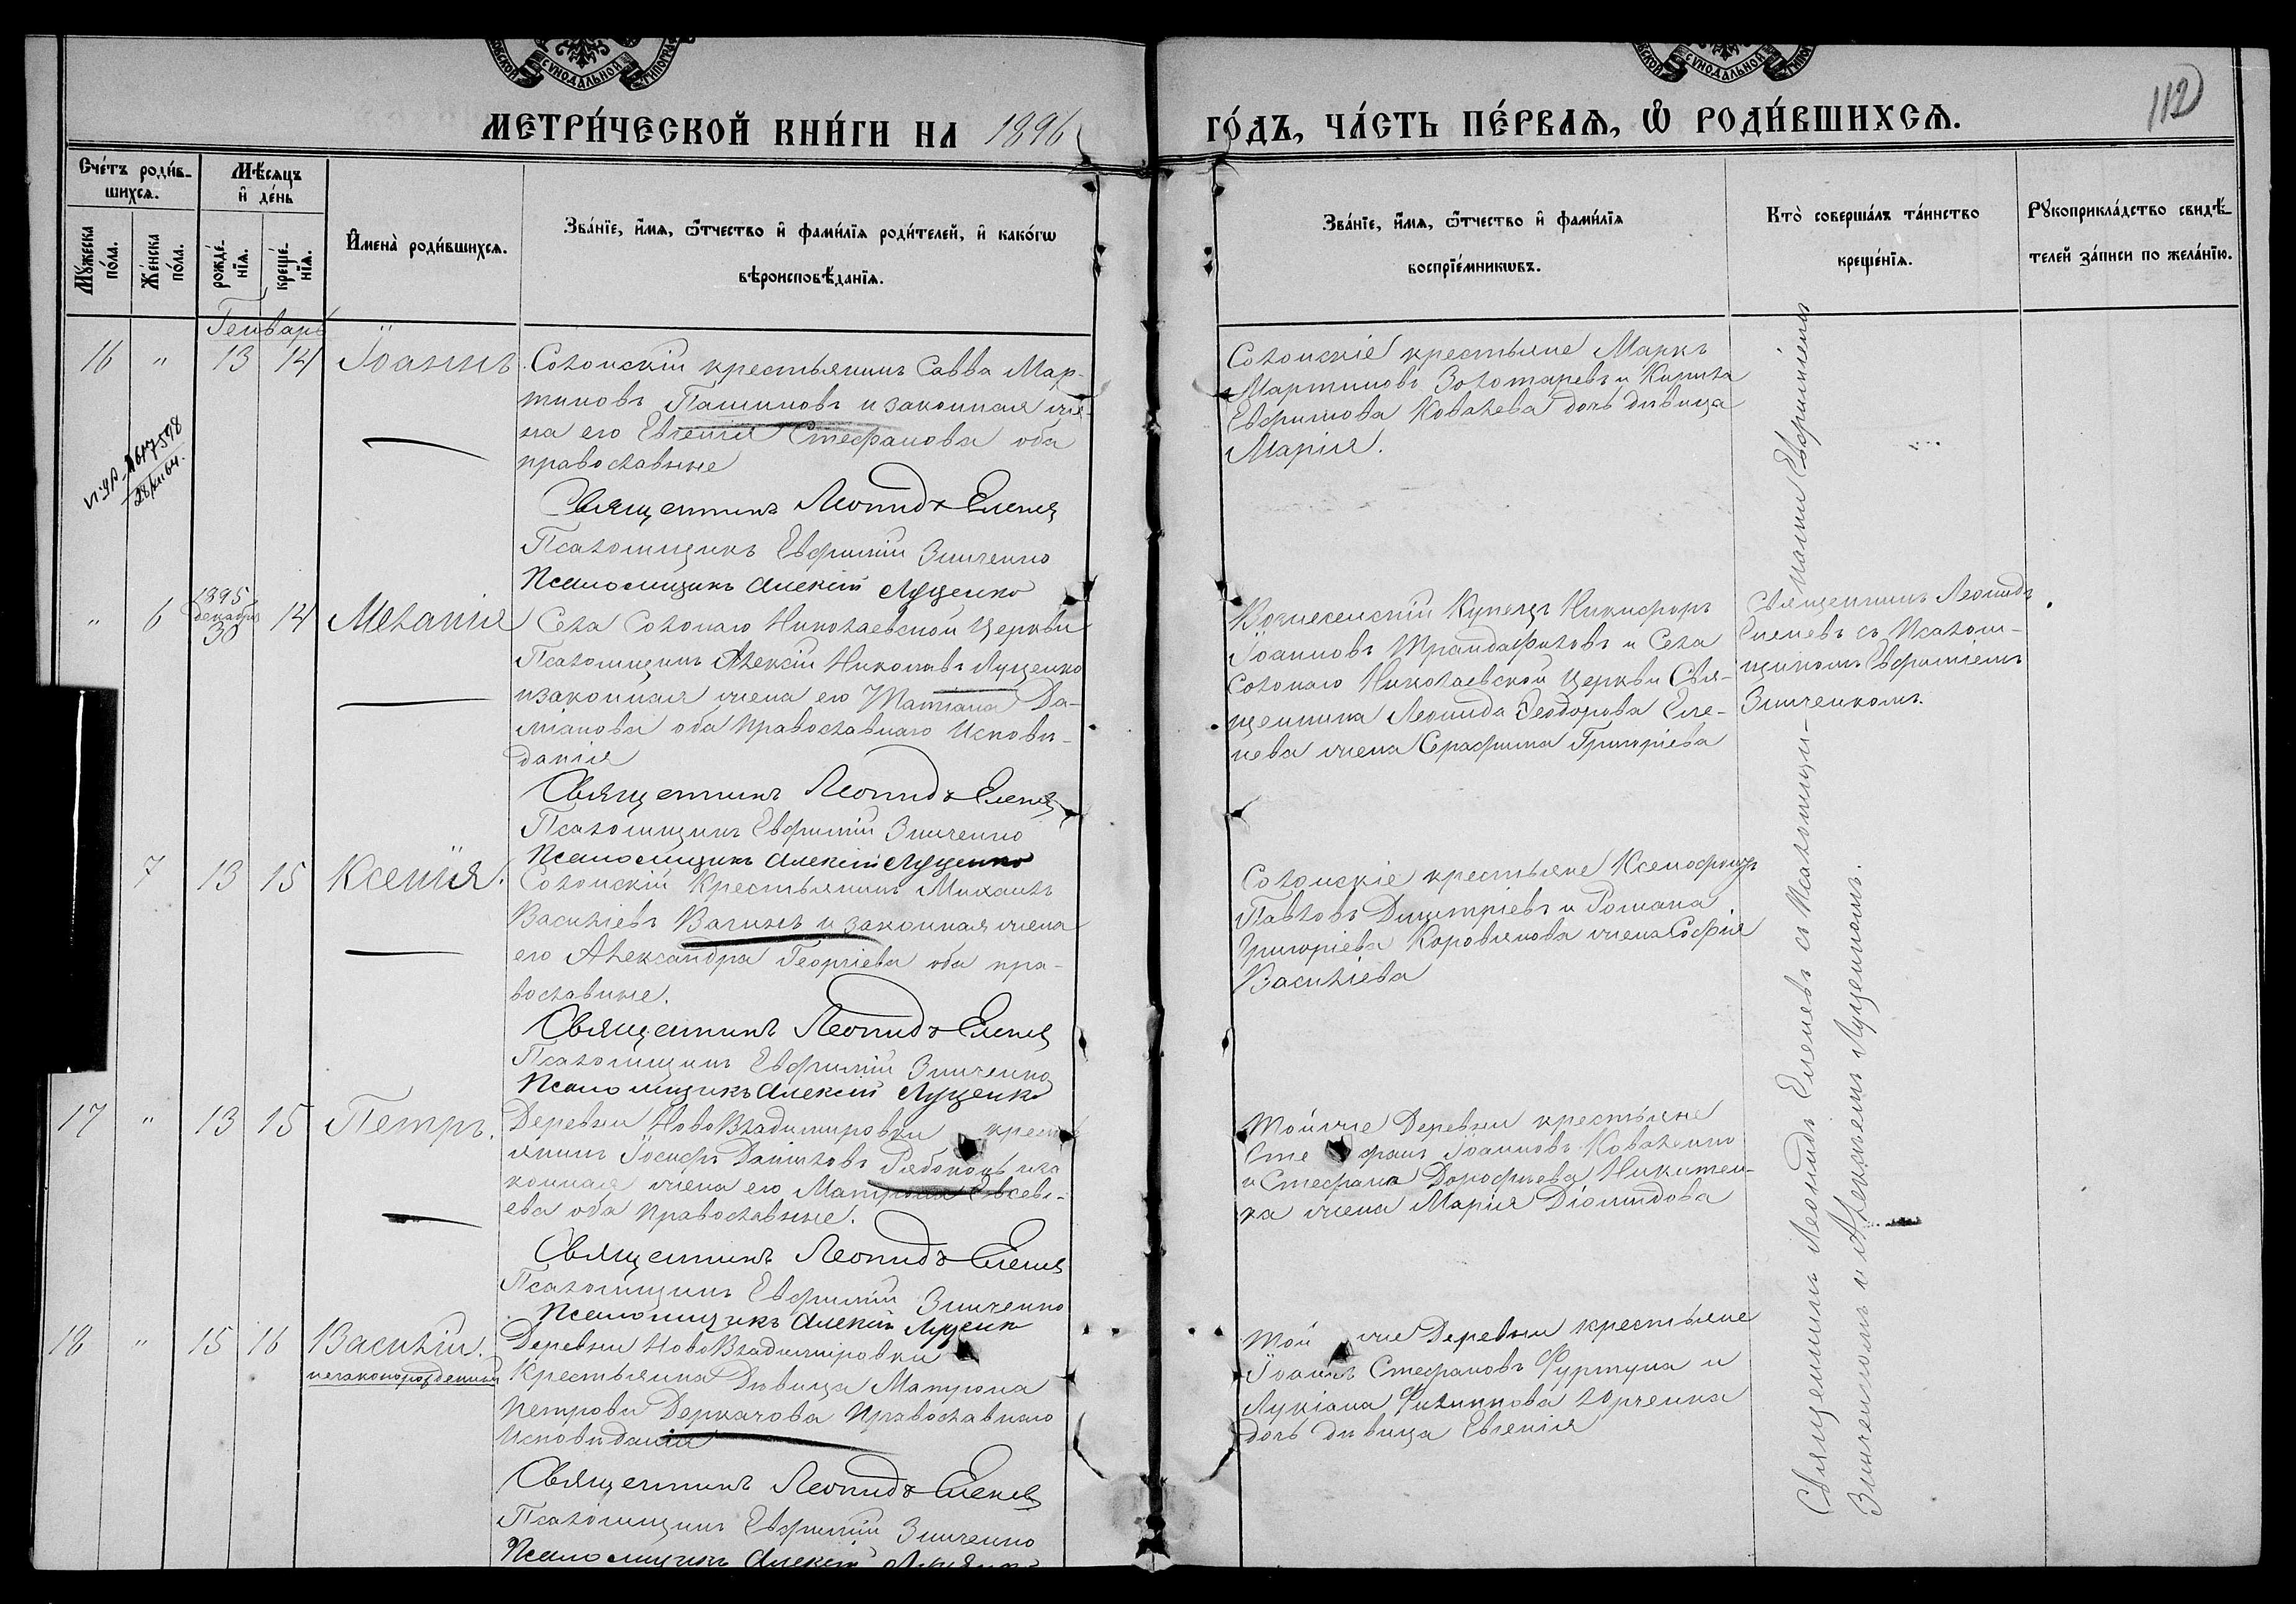 МЕТРИ́ЧЕСКОЙ КНИ́ГИ НА 1896
ГО́ДЪ, ЧА́СТЬ ПЕ́РВАѦ, Ѡ҆ РОДИ́ВШИХСѦ.
112
Сче́тъ роди́в-
шихсѧ.
Мѣ́сѧцъ
и҆ де́нь
Мꙋ́жеска
по́ла.
Же́нска
по́ла.
рожде́-
нїѧ.
креще́-
нїѧ.
И҆мена̀ роди́вшихсѧ.
Зва́нїе, и҆́мѧ, ѻ҆́тчество и҆ фами́лїѧ роди́телей, и҆ како́гѡ
вѣроисповѣ́данїѧ.
Зва́нїе, и҆́мѧ, ѻ҆́тчество и҆ фами́лїѧ
воспрїе́мникѡвъ.
Кто̀ соверша́лъ та́инство
креще́нїѧ.
Рꙋкоприкла́дство свидѣ́-
телей за́писи по жела́нїю.
Генварь
16 " 13 14 Іоаннъ.
Солонскій крестьянинъ Савва Мар-
тиновъ Пашиновъ и законная же-
на его Евгенія Стефанова оба
православные
Священникъ Леонидъ Еленев
Псаломщикъ Евфимій Зинченко
Псаломщикъ Алексій Луценко
Солонскіе крестьяне Маркъ
Мартиновъ Золотаревъ и
Евфимова Ковалева дочь дѣвица
Марія.
" 6 1895 декабрь 30 14 Меланія
Села Солонаго Николаевской Церкви
Псаломщикъ Алексій Николаевъ Луценко
и законная жена его Татіана Да-
міанова оба Православнаго Исповѣ-
данія
Священникъ Леонидъ Еленев
Псаломщикъ Евфимій Зинченко
Псаломщикъ Алексій Луценко
Вознесенскій Купецъ Никифоръ
Іоанновъ Трандафиловъ и Села
Солонаго Николаевской Церкви Свя-
щенника Леонида Ѳеодорова Еле-
нева жена Серафима Григоріева
Священникъ Леонидъ
Еленевъ съ Псалом-
щикомъ Евфиміемъ
Зинченкомъ.
7 13 15 Ксенія.
Солонскій Крестьянинъ Михаилъ
Василіевъ Вагинъ и законная жена
его Александра Георгіева оба пра-
вославные.
Священникъ Леонидъ Еленев
Псаломщикъ Евфимій Зинченко
Псаломщикъ Алексій Луценко
Солонскіе крестьяне Ксенофонтъ
Павловъ Димитріевъ и Романа
Григоріева Коровякова жена Софія
Василіева
17 " 13 15 Петръ.
Деревни НовоВладимировки кресть
янинъ Іосифъ Даниловъ Рябоконь и за
конная жена его Матрона Евсевь-
ева оба Православные.
Священникъ Леонидъ Еленев
Псаломщикъ Евфимій Зинченко
Псаломщикъ Алексій Луценк
Той же Деревни крестьяне
Стефанъ Іоанновъ Коваленко
и Стефана Дорофѣева Никитен-
ка жена Марія Діомидова
18 " 15 16 Василій.
незаконорожденный
Деревни НовоВладимировки
Крестьянка Дѣвица Матрона
Петрова Деркачова Православнаго
Исповѣданія
Священникъ Леонидъ Еленев
Псаломщикъ Евфимій Зинченко
Псаломщикъ Алексій
Той же Деревни крестьяне
Іоаннъ Стефановъ Фуртуна и
Лукіана Филиппова Юрченка
дочь дѣвица Евгенія
Священникъ Леонидъ Еленевъ съ Псаломщи-
ками Евфиміемъ
Зинченкомъ и Алексѣемъ Луценкомъ.